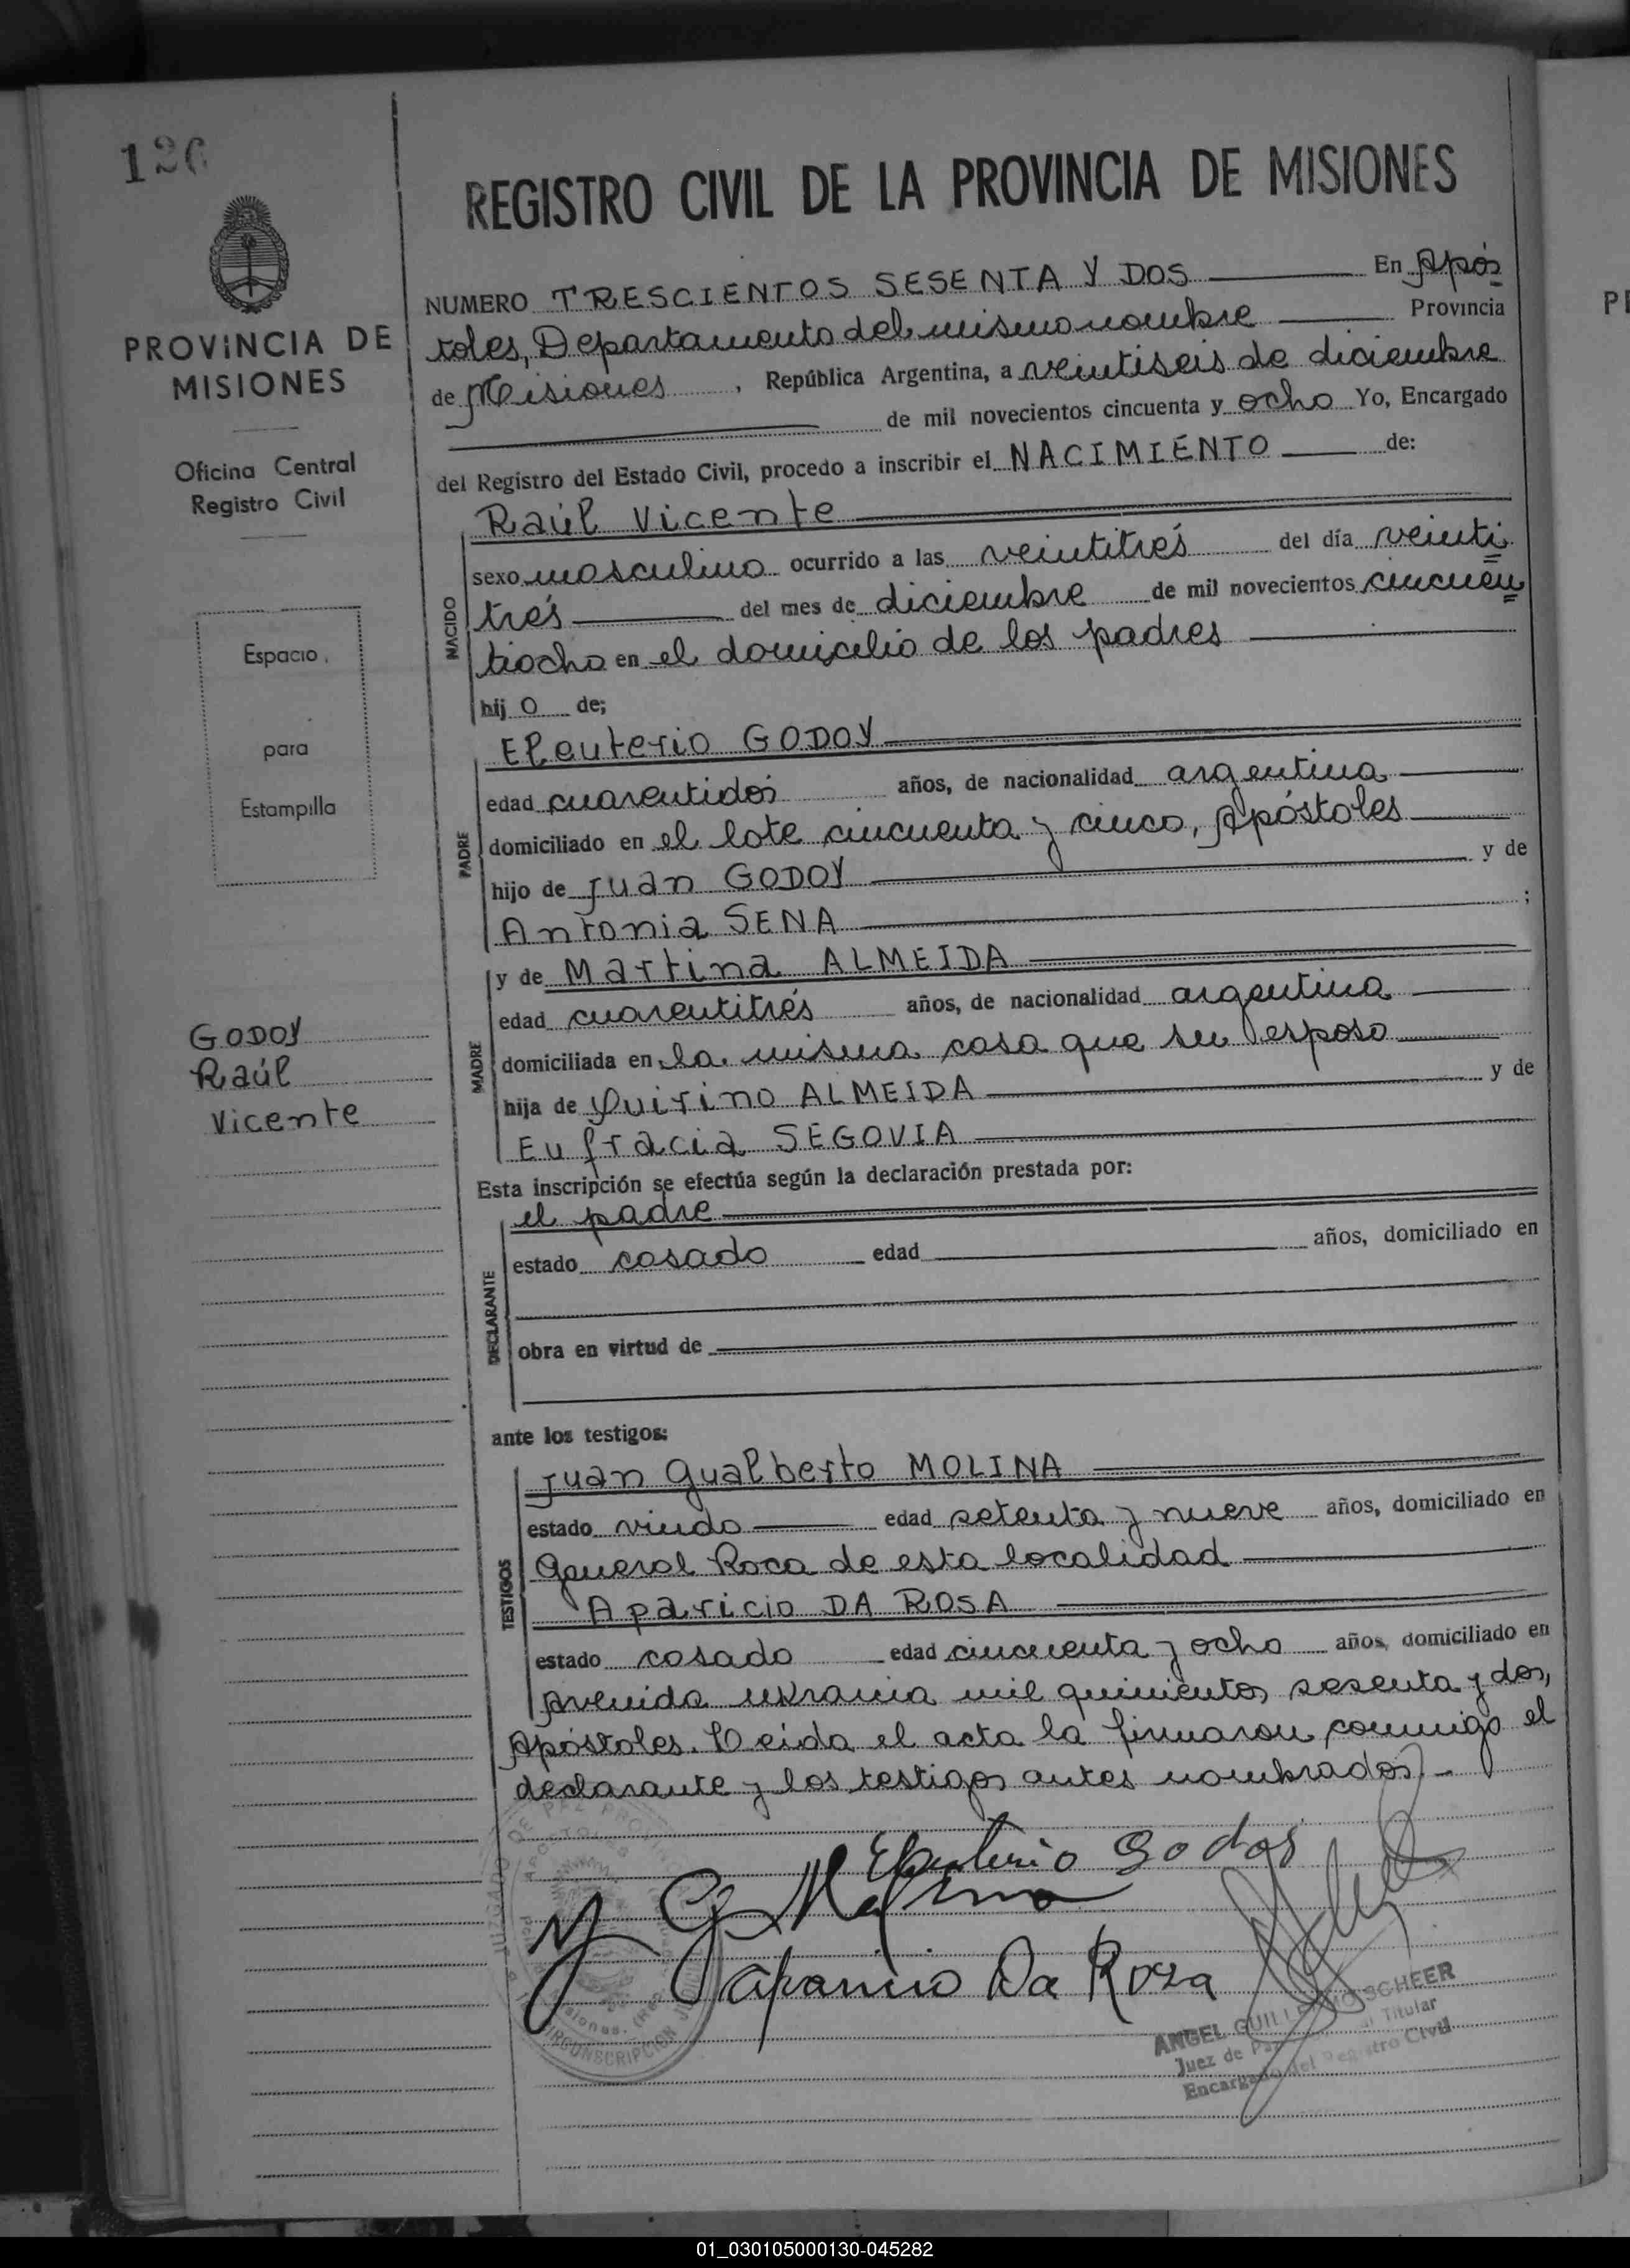 126
PROVINCIA DE
MISIONES
Oficina Central
Registro Civil
Espacio
para
Estampilla
GODOY
Raúl
Vicente
REGISTRO CIVIL DE LA PROVINCIA DE MISIONES
NUMERO TRESCIENTOS SESENTA Y DOS En Após
toles, Departamento del mismo nombre Provincia
de Misiones, República Argentina, a veintiseis de diciembre
de mil novecientos cincuenta y ocho Yo, Encargado
del Registro del Estado Civil, procedo a inscribir el NACIMIENTO de:
NACIDO
Raúl Vicente
sexo masculino ocurrido a las veintitrés del día veinti
trés del mes de diciembre de mil novecientos cincuen
tiocho en el domicilio de los padres
hij o de;
PADRE
Eleuterio GODOY
edad cuarentidós años, de nacionalidad argentina
domiciliado en el lote cincuenta y cinco, Apóstoles
hijo de Juan GODOY y de
Antonia SENA ;
MADRE
y de Martina ALMEIDA
edad cuarentitrés años, de nacionalidad argentina
domiciliada en la misma casa que su esposo
hija de Quirino ALMEIDA y de
Eufracia SEGOVIA
Esta inscripción se efectúa según la declaración prestada por:
DECLARANTE
el padre
estado casado edad años, domiciliado en
obra en virtud de
ante los testigos:
TESTIGOS
Juan Gualberto MOLINA
estado viudo edad setenta y nueve años, domiciliado en
General Roca de esta localidad
Aparicio DA ROSA
estado casado edad cincuenta y ocho años, domiciliado en
Avenida Ukrania mil quinientos sesenta y dos,
Apóstoles. Leída el acta la firmaron conmigo el
declarante y los testigos antes nombrados.-
Eleuterio Godoy
J G Molina
Aparicio Da Rosa
ANGEL GUILLERMO SCHEER
Juez de Paz Titular
Encargado del Registro Civil
PR
01_030105000130-045282